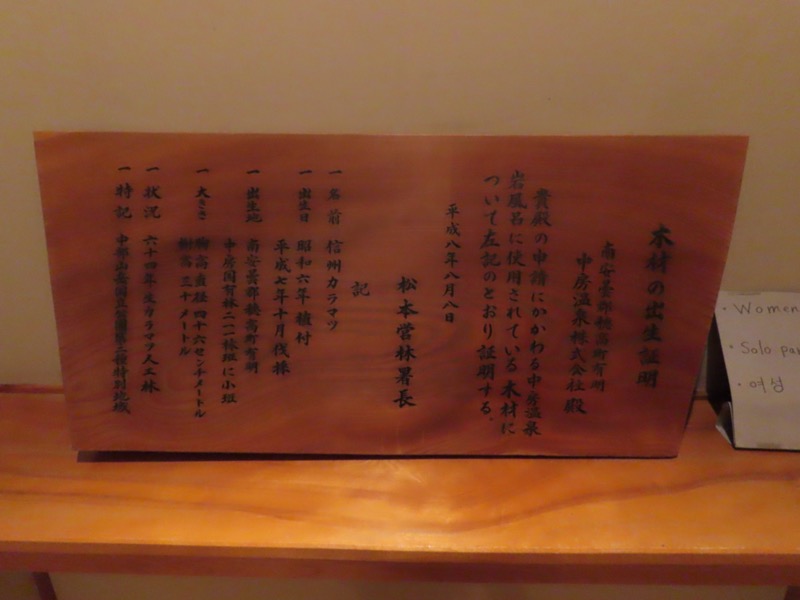 木材の出生証明
南安曇郡穂高町有明
中房温泉株式会社 殿
貴殿の申請にかかわる中房温泉
岩風呂に使用されている木材に
ついて左記のとおり証明する。
平成八年八月八日
松本営林署長
記
一 名前 信州カラマツ
一 出生日 昭和六年植付
平成七年十月伐採
一 出生地 南安曇郡穂高町有明
中房国有林二一一林班に小班
一 大きさ 胸高直径四十六センチメートル
樹高 三十メートル
一 状況 六十四年生カラマツ人工林
一 特記 中部山岳国立公園第二種特別地域
・Women
・Solo
・여성